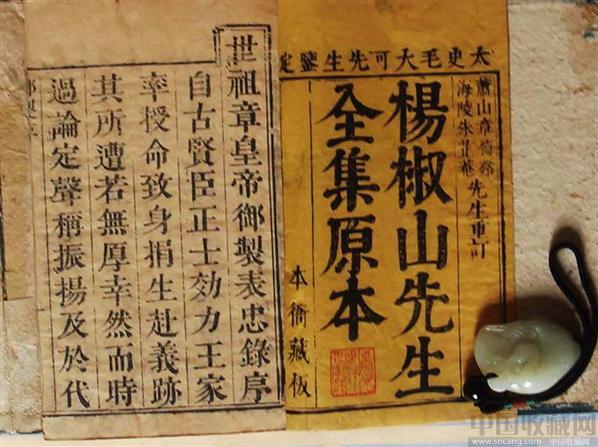 太史毛大可先生鑒定
蕭山章
海陵朱
先生重訂
楊椒山先生
全集原本
本衙藏板
世祖章皇帝御製表忠錄序
自古賢臣正士効力王家
率授命致身捐生赴義跡
其所遭若無厚幸然而時
過論定聲稱振揚及於代
中国收藏网
www.socang.com 中国收藏网